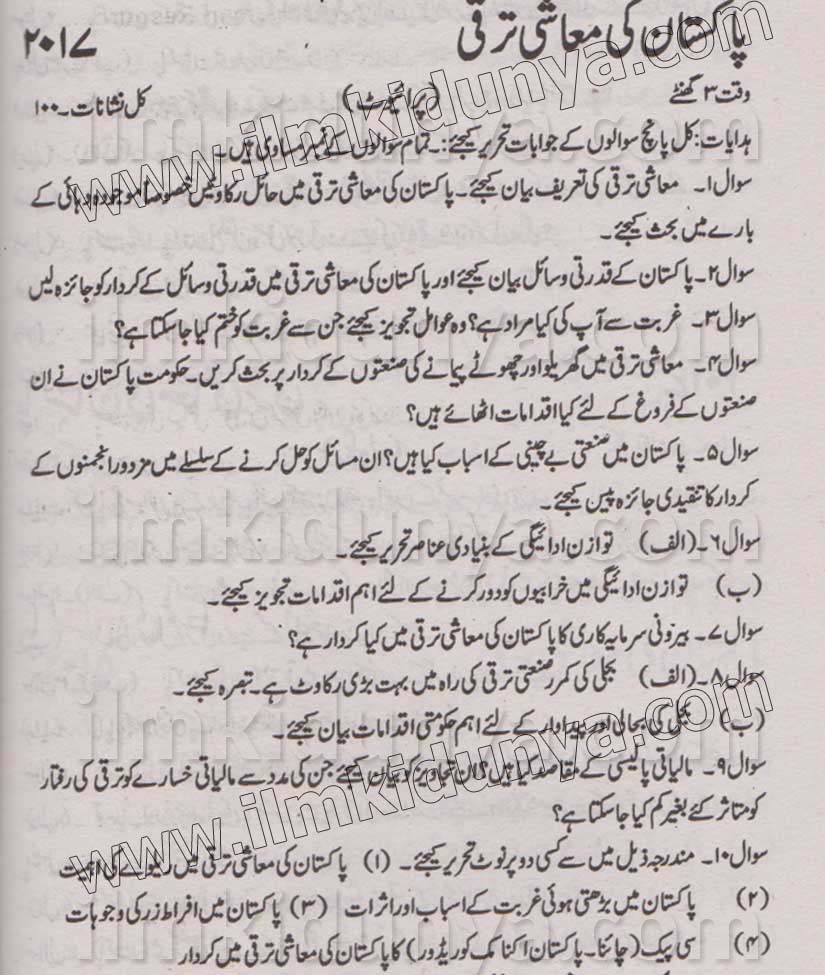 پاکستان کی معاشی ترقی ۲۰۱۷
وقت ۳ گھنٹے (پرائیوٹ) کل نشانات۔۱۰۰
ہدایات: کل پانچ سوالوں کے جوابات تحریر کیجئے:۔ تمام سوالوں کے نمبر مساوی ہیں۔
سوال۱۔ معاشی ترقی کی تعریف بیان کیجئے۔ پاکستان کی معاشی ترقی میں حائل رکاوٹیں خصوصاً موجودہ دہائی کے
بارے میں بحث کیجئے۔
سوال۲۔ پاکستان کے قدرتی وسائل بیان کیجئے اور پاکستان کی معاشی ترقی میں قدرتی وسائل کے کردار کو جائزہ لیں
سوال۳۔ غربت سے آپ کی کیا مراد ہے؟ وہ عوامل تجویز کیجئے جن سے غربت کو ختم کیا جاسکتا ہے؟
سوال۴۔ معاشی ترقی میں گھریلو اور چھوٹے پیمانے کی صنعتوں کے کردار پر بحث کریں۔ حکومت پاکستان نے ان
صنعتوں کے فروغ کے لئے کیا اقدامات اٹھائے ہیں؟
سوال۵۔ پاکستان میں صنعتی بے چینی کے اسباب کیا ہیں؟ ان مسائل کو حل کرنے کے سلسلے میں مزدور انجمنوں کے
کردار کا تنقیدی جائزہ پیس کیجئے۔
سوال۶۔ (الف) توازن ادائیگی کے بنیادی عناصر تحریر کیجئے۔
(ب) توازن ادائیگی میں خرابیوں کو دور کرنے کے لئے اہم اقدامات تجویز کیجئے۔
سوال۷۔ بیرونی سرمایہ کاری کا پاکستان کی معاشی ترقی میں کیا کردار ہے؟
سوال۸۔ (الف) بجلی کی کمر صنعتی ترقی کی راہ میں بہت بڑی رکاوٹ ہے۔ تبصرہ کیجئے۔
(ب) بجلی کی بحالی اور پیداوار کے لئے اہم حکومتی اقدامات بیان کیجئے۔
سوال۹۔ مالیاتی پالیسی کے مقاصد کیا ہیں؟ ان تجاویز کو بیان کیجئے جن کی مدد سے مالیاتی خسارے کو ترقی کی رفتار
کو متاثر کئے بغیر کم کیا جاسکتا ہے؟
سوال۱۰۔ مندرجہ ذیل میں سے کسی دو پر نوٹ تحریر کیجئے۔ (۱) پاکستان کی معاشی ترقی میں ریلوے کی اہمیت
(۲) پاکستان میں بڑھتی ہوئی غربت کے اسباب اور اثرات (۳) پاکستان میں افراط زر کی وجوہات
(۴) سی پیک (چائنا۔ پاکستان اکنامک کوریڈور) کا پاکستان کی معاشی ترقی میں کردار
www.ilmkidunya.com
www.ilmkidunya.com
ilmkidunya.com
ilmkidunya.com
ilmkidunya.com
ilmkidunya.com
ilmkidunya.com